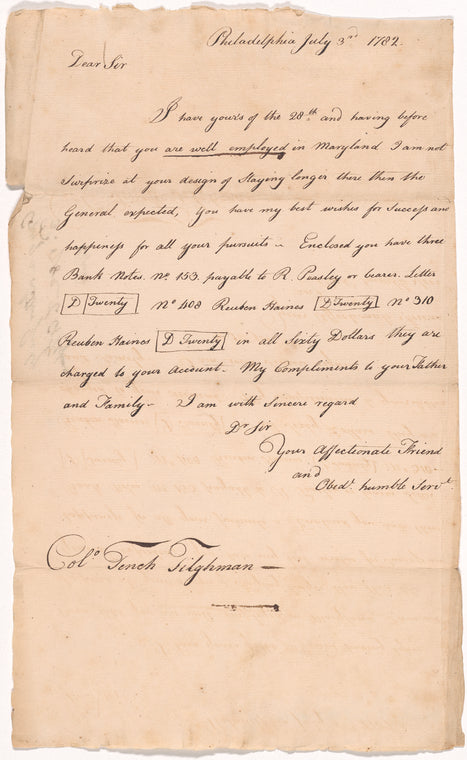 Philadelphia July 3rd 1782.
Dear Sir
I have your's of the 28th and having before
heard that you are well employed in Maryland I am not
Surprize at your design of Staying longer there then the
General expected, you have my best wishes for Success and
happiness for all your pursuits – Enclosed you have three
Bank Notes. No. 153. payable to R. Peasley or bearer. Letter
D Twenty No 408 Reuben Haines D Twenty No 310
Reuben Haines D Twenty in all Sixty Dollars they are
charged to your Account – My Compliments to your Father
and Family – I am with Sincere regard
Dr Sir
Your Affectionate Friend
and
Obedt. humble Servt.
Colo Tench Tilghman –